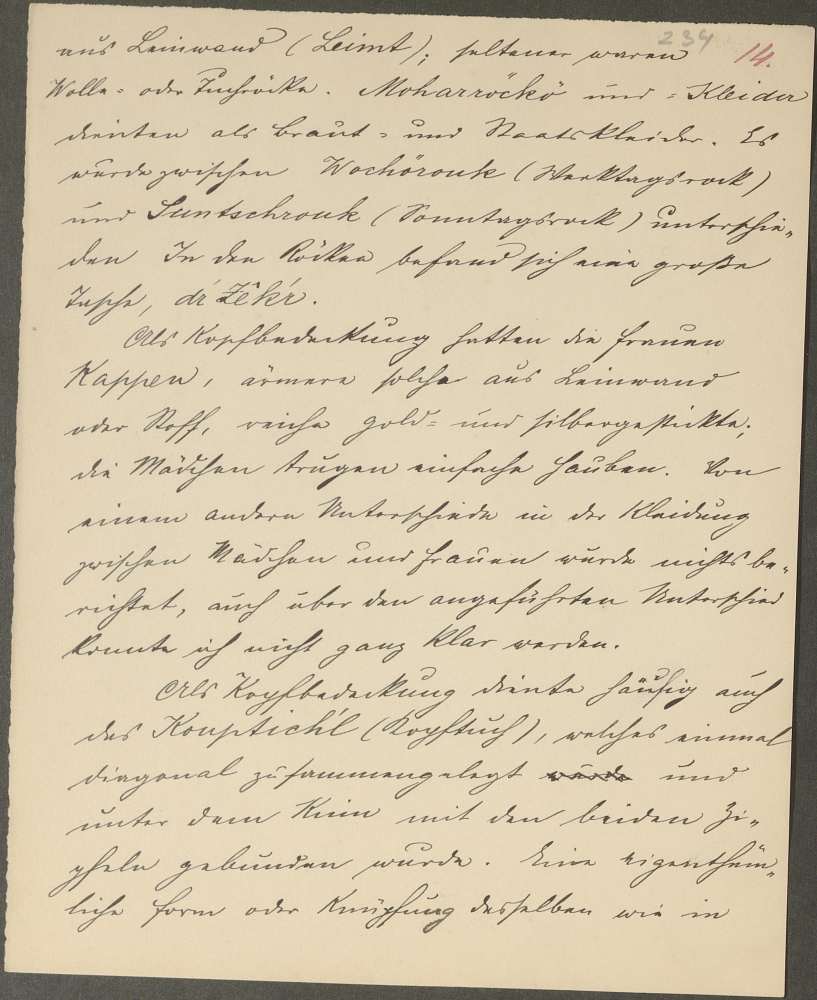 234 14.
aus Leinwand (Leimt); seltener waren
Wolle- oder Tuchröcke. Moharröckö und -Kleider
dienten als Braut- und Staatskleider. Es
wurde zwischen Wochörouk (Werktagsrock)
und Suntschrouk (Sonntagsrock) unterschie-
den In den Röcken befand sich eine große
Tasche, dr Zêkr.
Als Kopfbedeckung hatten die Frauen
Kappen, ärmere solche aus Leinwand
oder Stoff, reiche gold- und silbergestickte;
die Mädchen trugen einfache Hauben. Von
einem andern Unterschiede in der Kleidung
zwischen Mädchen und Frauen wurde nichts be-
richtet, auch über den angeführten Unterschied
konnte ich nicht ganz klar werden.
Als Kopfbedeckung diente häufig auch
das Kouptich'l (Kopftuch), welches einmal
diagonal zusammengelegt wurde und
unter dem Kinn mit den beiden Zi-
pfeln gebunden wurde. Eine eigenthüm-
liche Form oder Knüpfung desselben wie in